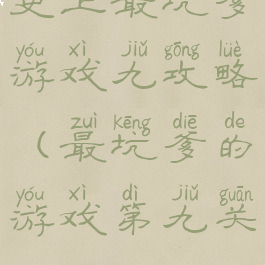 史上最坑爹
yóu xì jiǔ gōng lüè
游戏九攻略
zuì kēng diē de
（最坑爹的
yóu xì dì jiǔ guān
游戏第九关